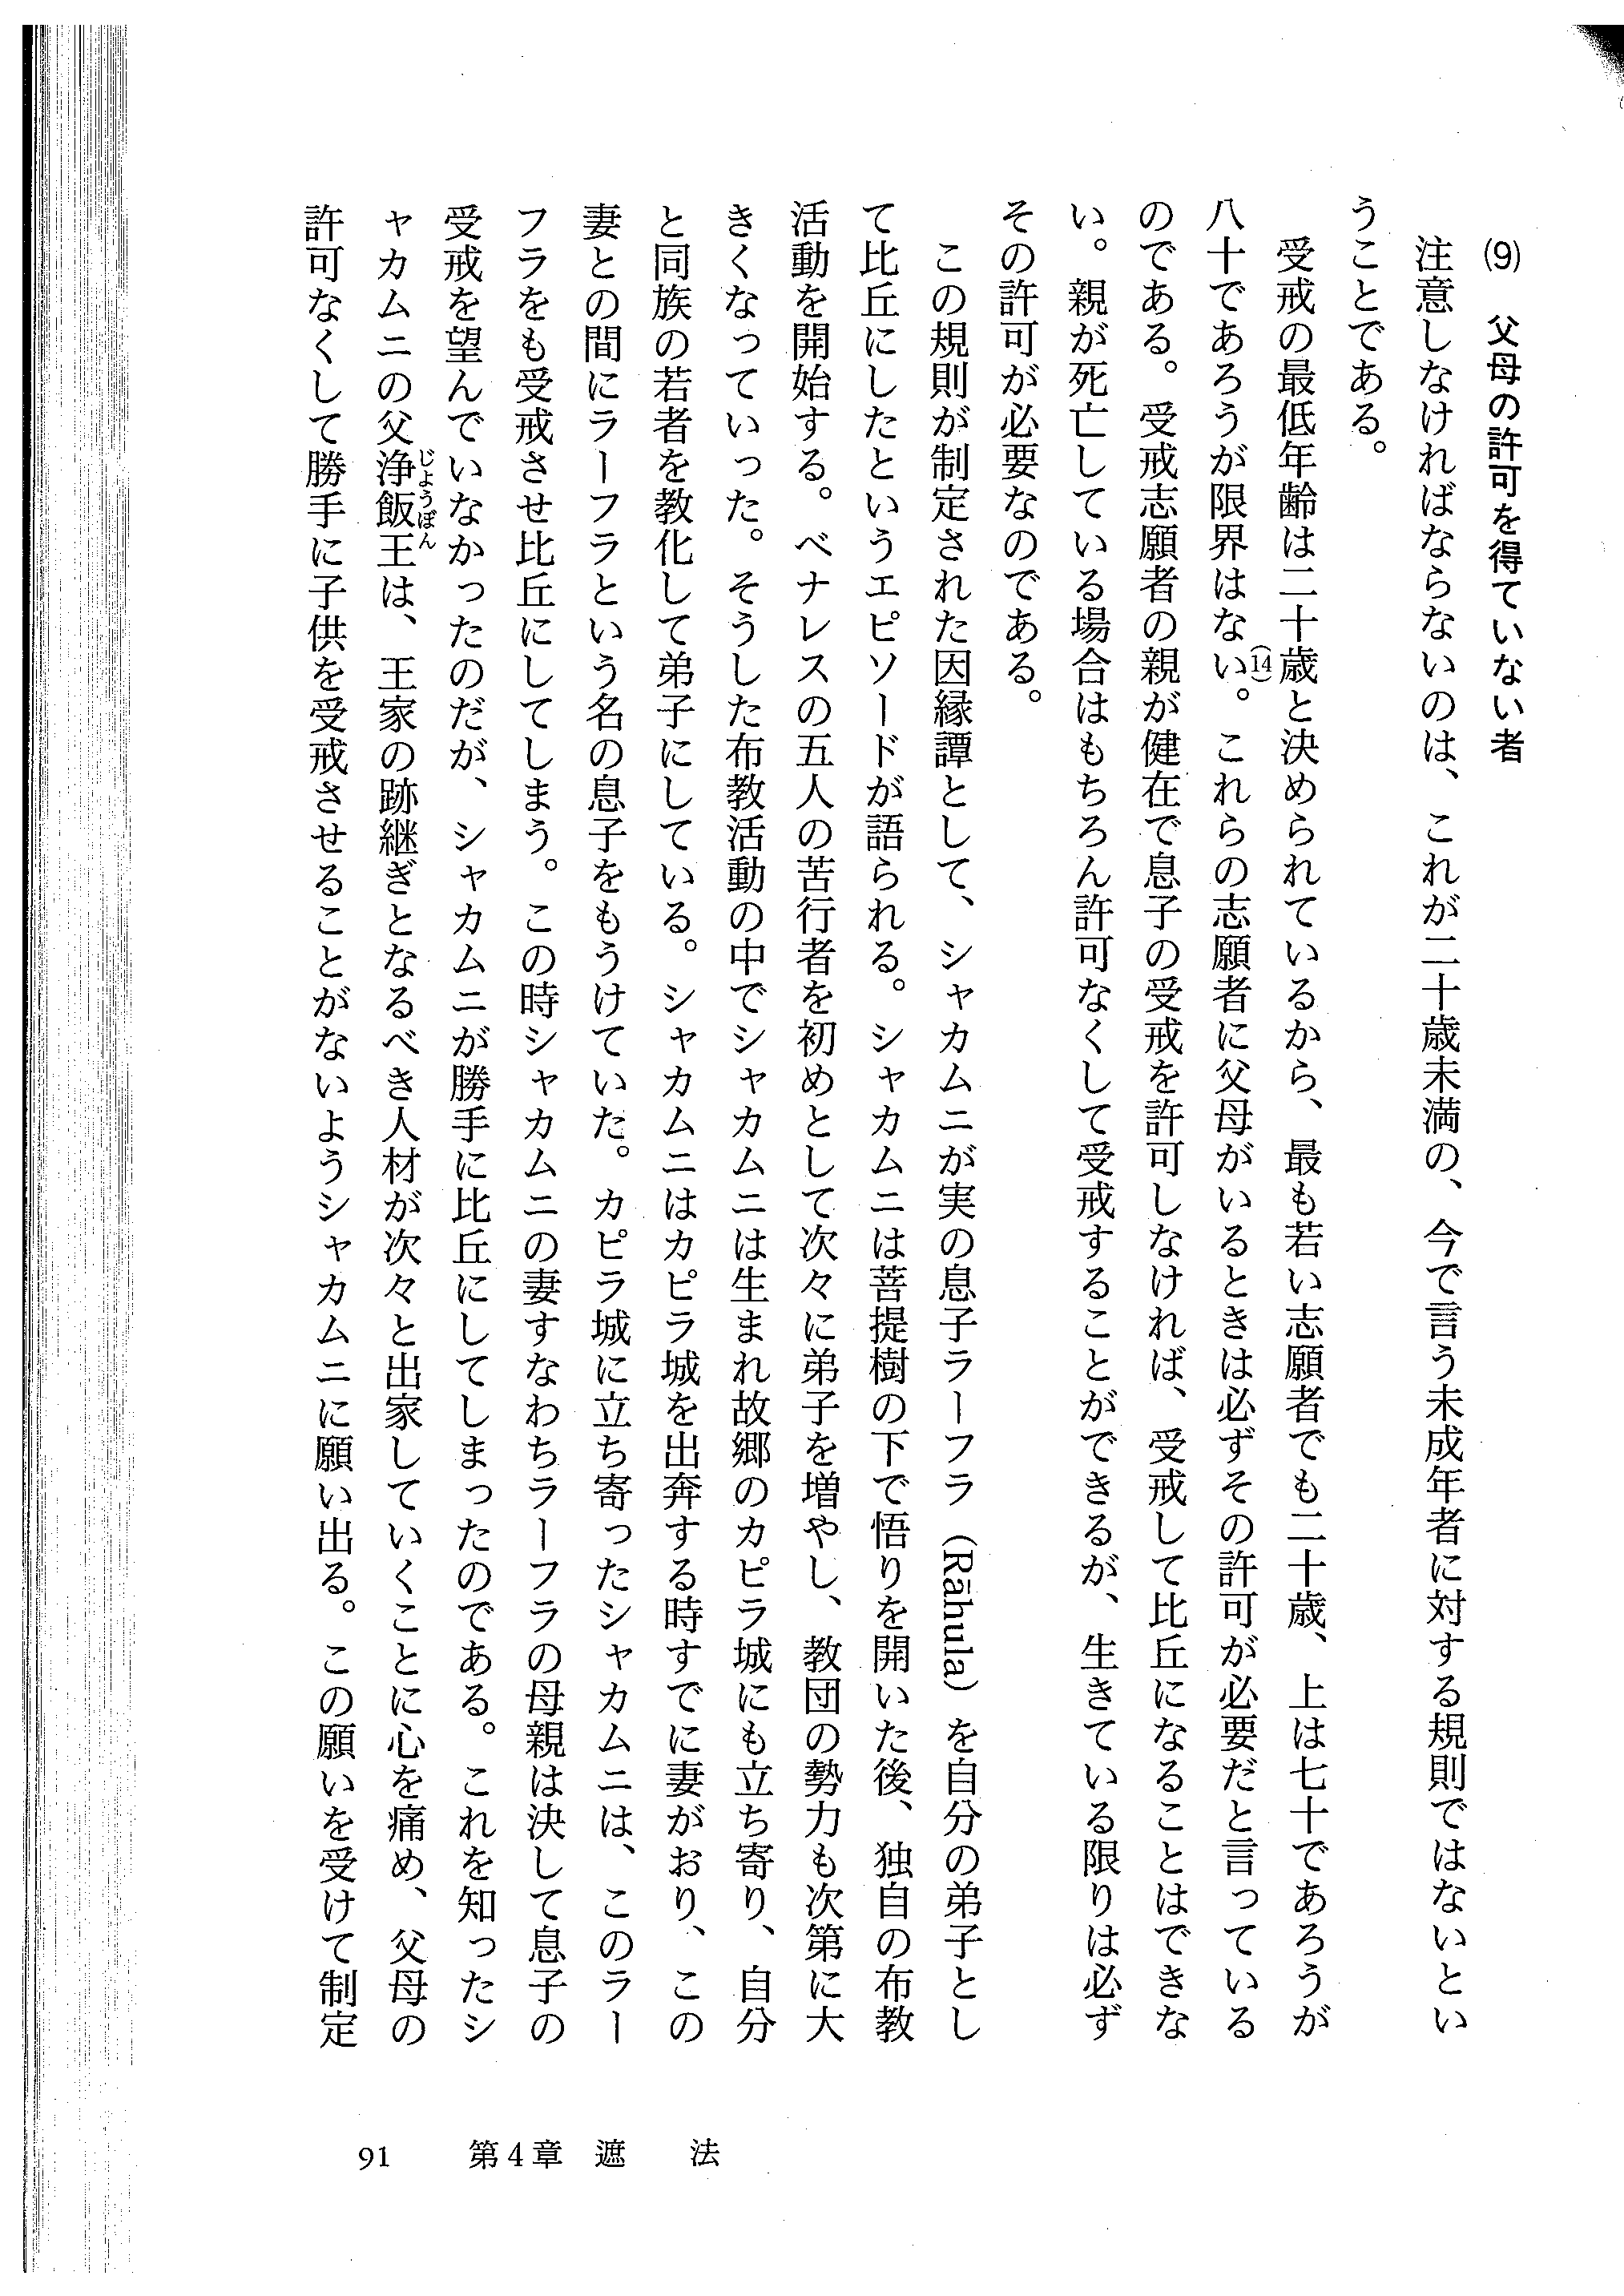 (9)　父母の許可を得ていない者
注意しなければならないのは、これが二十歳未満の、今で言う未成年者に対する規則ではないとい
うことである。
受戒の最低年齢は二十歳と決められているから、最も若い志願者でも二十歳、上は七十であろうが
八十であろうが限界はない(14)。これらの志願者に父母がいるときは必ずその許可が必要だと言っている
のである。受戒志願者の親が健在で息子の受戒を許可しなければ、受戒して比丘になることはできな
い。親が死亡している場合はもちろん許可なくして受戒することができるが、生きている限りは必ず
その許可が必要なのである。
この規則が制定された因縁譚として、シャカムニが実の息子ラーフラ（Rāhula）を自分の弟子とし
て比丘にしたというエピソードが語られる。シャカムニは菩提樹の下で悟りを開いた後、独自の布教
活動を開始する。ベナレスの五人の苦行者を初めとして次々に弟子を増やし、教団の勢力も次第に大
きくなっていった。そうした布教活動の中でシャカムニは生まれ故郷のカピラ城にも立ち寄り、自分
と同族の若者を教化して弟子にしている。シャカムニはカピラ城を出奔する時すでに妻がおり、この
妻との間にラーフラという名の息子をもうけていた。カピラ城に立ち寄ったシャカムニは、このラー
フラをも受戒させ比丘にしてしまう。この時シャカムニの妻すなわちラーフラの母親は決して息子の
受戒を望んでいなかったのだが、シャカムニが勝手に比丘にしてしまったのである。これを知ったシ
ャカムニの父浄飯王じょうぼんは、王家の跡継ぎとなるべき人材が次々と出家していくことに心を痛め、父母の
許可なくして勝手に子供を受戒させることがないようシャカムニに願い出る。この願いを受けて制定
91　第4章　遮　法